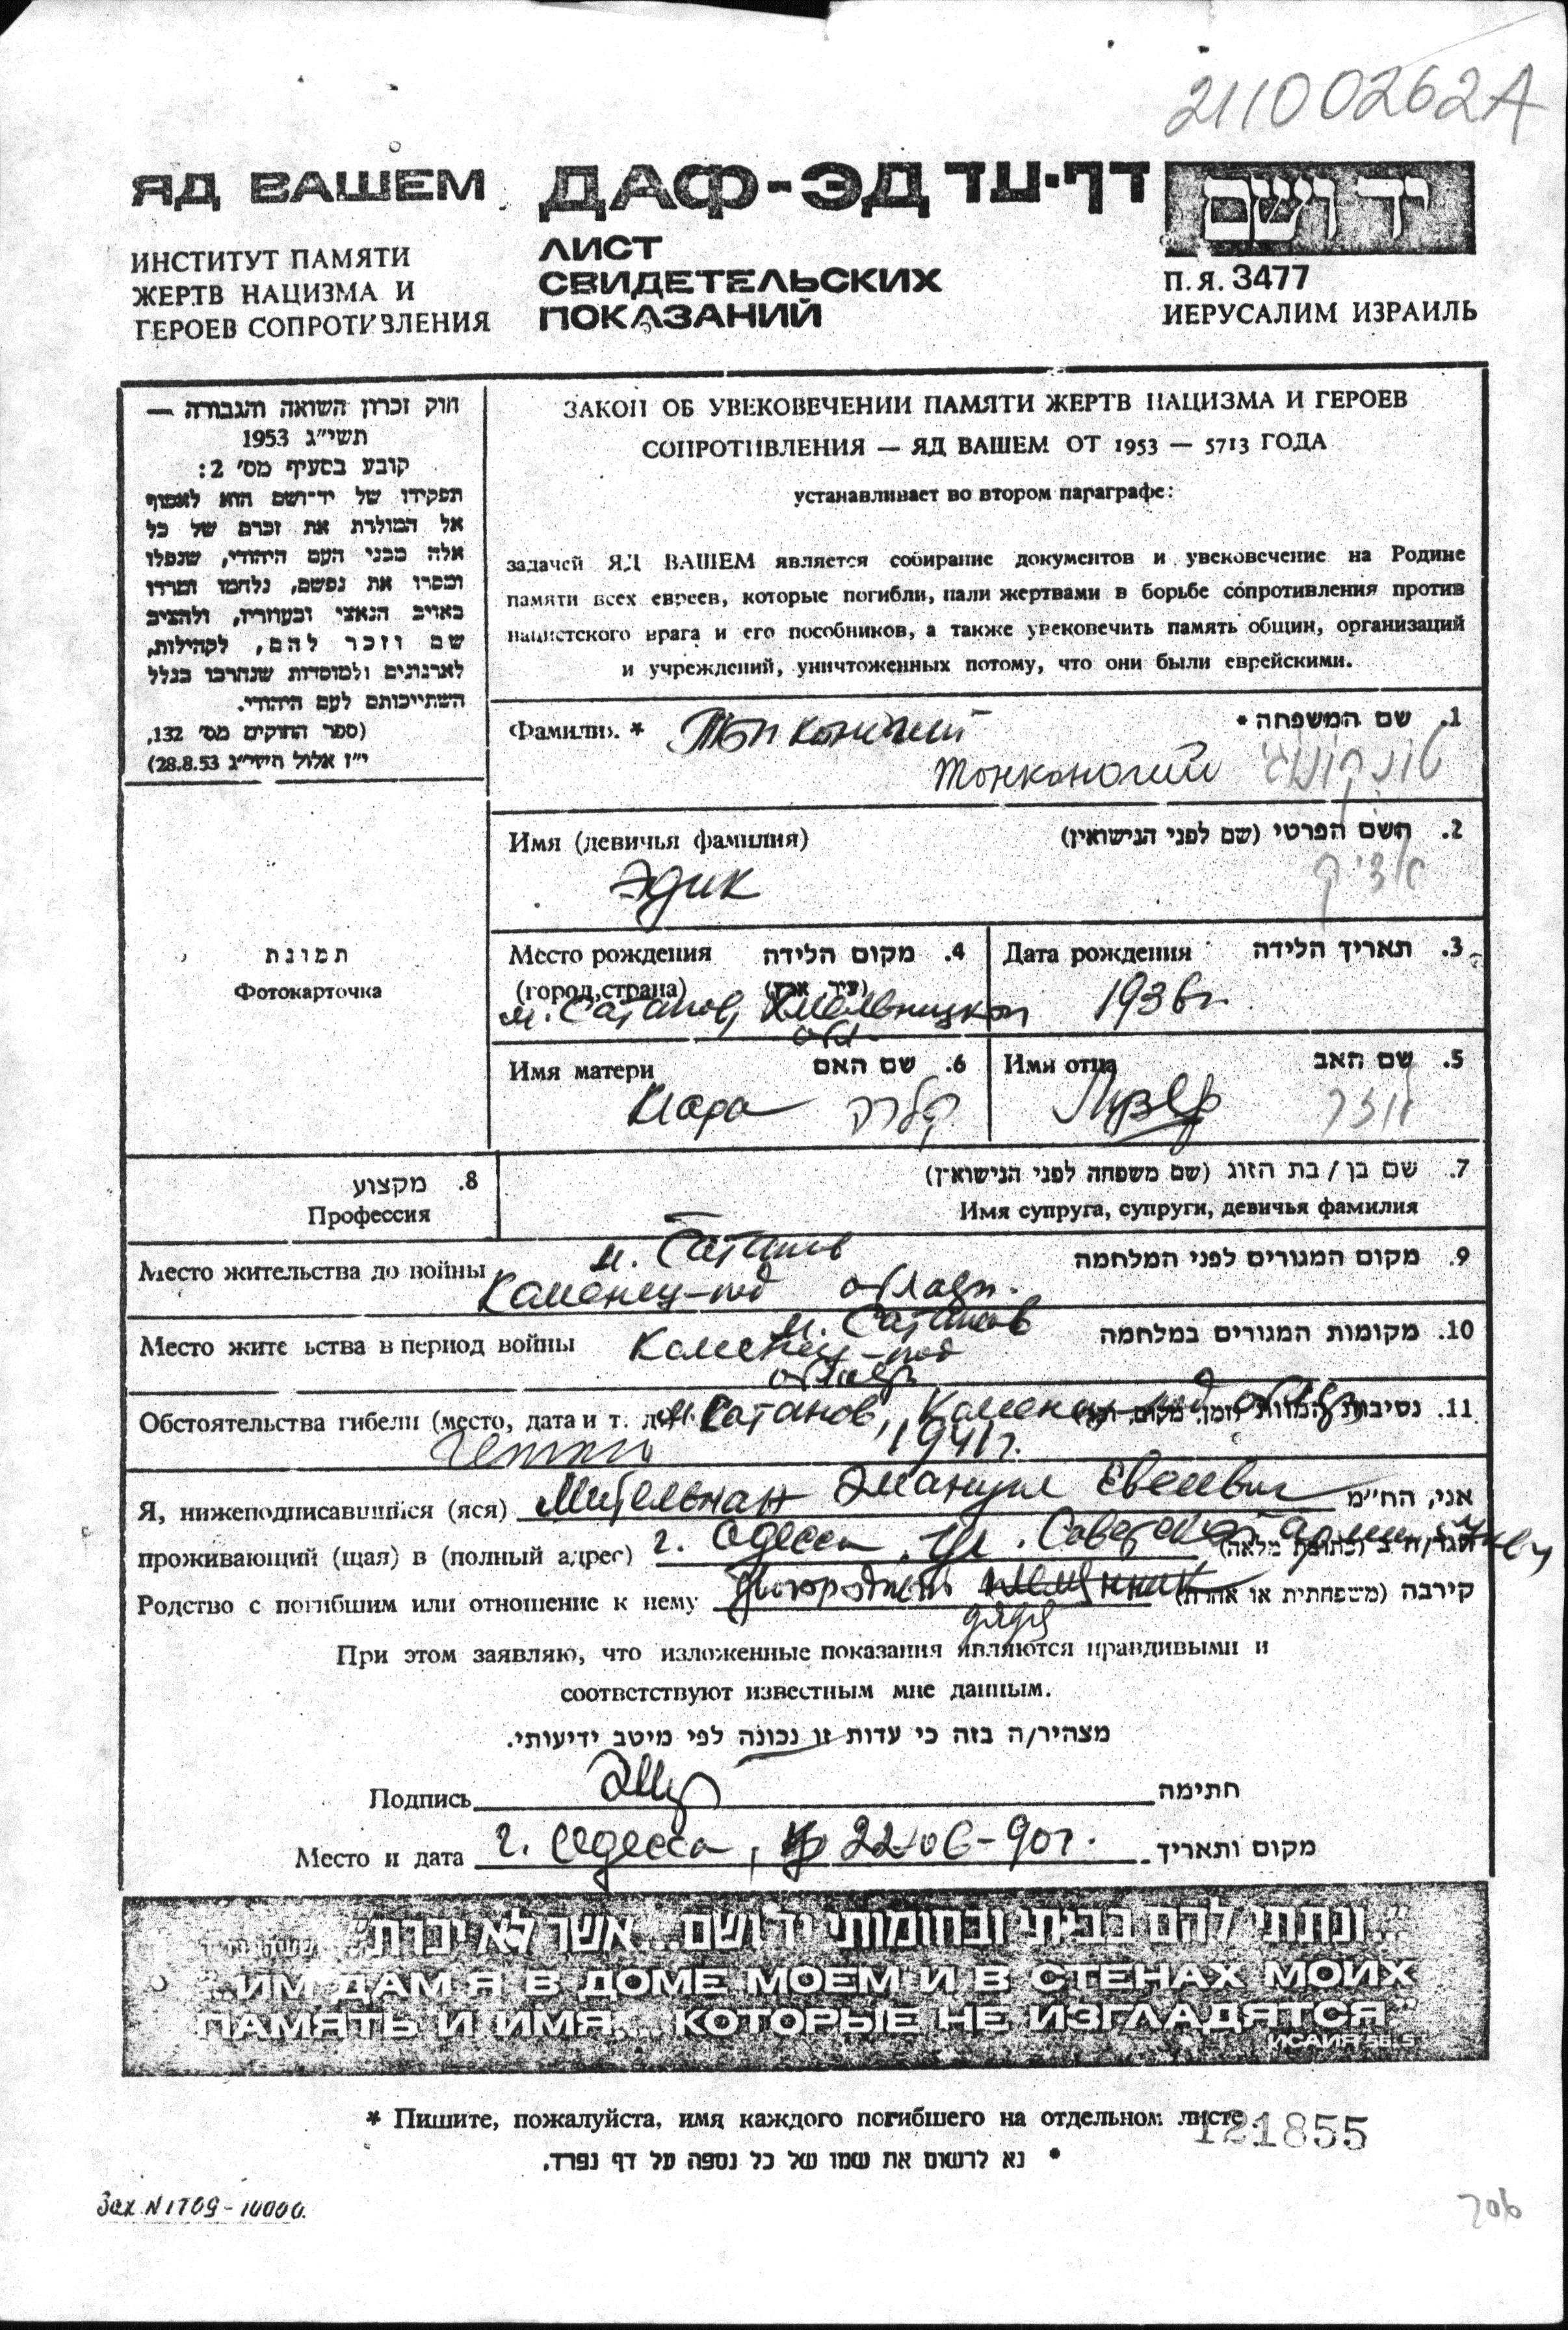 21100262A
ЯД ВАШЕМ
ИНСТИТУТ ПАМЯТИ
ЖЕРТВ НАЦИЗМА И
ГЕРОЕВ СОПРОТИВЛЕНИЯ
ДАФ-ЭД דף-עד
ЛИСТ
СВИДЕТЕЛЬСКИХ
ПОКАЗАНИЙ
יד ושם
П.Я. 3477
ИЕРУСАЛИМ ИЗРАИЛЬ
חוק זכרון השואה והגבורה —
תשי״ג 1953
קובע בסעיף מס׳ 2:
תפקידו של יד־ושם הוא לאסוף
אל המולדת את זכרם של כל
אלה מבני העם היהודי, שנפלו
ומסרו את נפשם, נלחמו ומרדו
באויב הנאצי ובעוזריו, ולהציב
שם וזכר להם, לקהילות,
לארגונים ולמוסדות שנחרבו בגלל
השתייכותם לעם היהודי.
(ספר החוקים מס׳ 132,
י״ז אלול תשי״ג 28.8.53)
ЗАКОН ОБ УВЕКОВЕЧЕНИИ ПАМЯТИ ЖЕРТВ НАЦИЗМА И ГЕРОЕВ
СОПРОТИВЛЕНИЯ — ЯД ВАШЕМ ОТ 1953 — 5713 ГОДА
устанавливает во втором параграфе:
задачей ЯД ВАШЕМ является собирание документов и увековечение на Родине
памяти всех евреев, которые погибли, пали жертвами в борьбе сопротивления против
нацистского врага и его пособников, а также увековечить память общин, организаций
и учреждений, уничтоженных потому, что они были еврейскими.
תמונת
Фотокарточка
Фамилия * 1. שם המשפחה *
Тонконогий טונקונוגי
Имя (девичья фамилия) 2. השם הפרטי (שם לפני הנישואין)
Эдик אדיק
Место рождения 4. מקום הלידה
(город, страна)
м. Сатанов, Хмельницкой
обл.
Дата рождения 3. תאריך הלידה
1936г.
Имя матери 6. שם האם
Клара קלרה
Имя отца 5. שם האב
8. מקצוע
Профессия
7. שם בן / בת הזוג (שם משפחה לפני הנישואין)
Имя супруга, супруги, девичья фамилия
м. Сатанов
Место жительства до войны 9. מקום המגורים לפני המלחמה
Каменец-под
м. Сатанов
Место жительства в период войны 10. מקומות המגורים במלחמה
Каменец-под
Обстоятельства гибели (место, дата и т. д.) 11. נסיבות המוות (זמן, מקום, וכו׳)
м. Сатанов, Каменец-под
гетто 1941г.
Я, нижеподписавшийся (яся) Мительман Эмануил Евсеевич אני, הח״מ
проживающий (щая) в (полный адрес) г. Одесса, ул. Советской Армии
Родство с погибшим или отношение к нему двоюродный племянник קירבה (משפחתית או אחרת)
дядя
При этом заявляю, что изложенные показания являются правдивыми и
соответствуют известным мне данным.
מצהיר/ה בזה כי עדות זו נכונה לפי מיטב ידיעותי.
Подпись חתימה
Место и дата г. Одесса, 22-06-90г. מקום ותאריך
״...ונתתי להם בביתי ובחומותי יד ושם...אשר לא יכרת״
"...ИМ ДАМ Я В ДОМЕ МОЕМ И В СТЕНАХ МОИХ
ПАМЯТЬ И ИМЯ... КОТОРЫЕ НЕ ИЗГЛАДЯТСЯ."
ИСАИЯ 56.5
* Пишите, пожалуйста, имя каждого погибшего на отдельном листе.
121855
* נא לרשום את שמו של כל נספה על דף נפרד.
Зак. N 1709-10000.
706